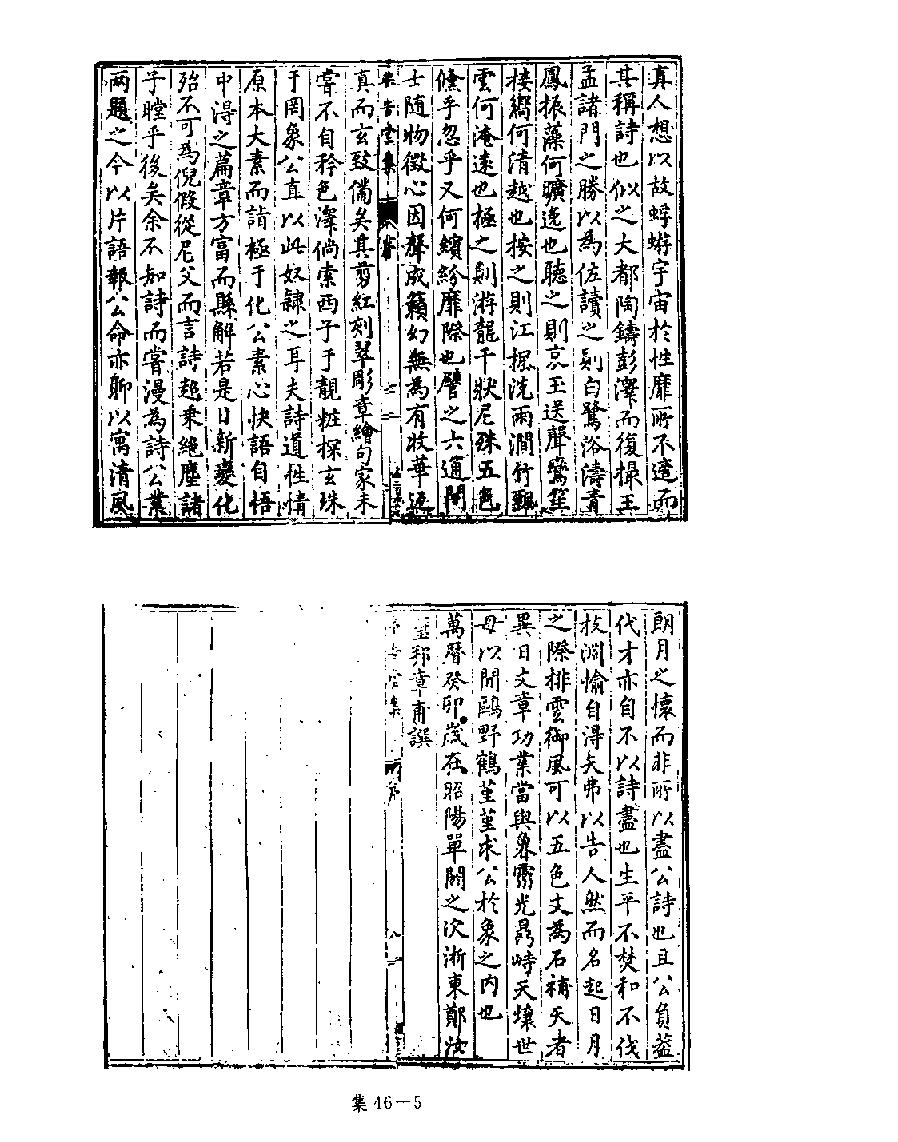 真人想以故蜉蝣宇宙於性靡所不達而
其稱詩也似之大都陶鑄彭澤而復撮王
孟諸門之勝以為佐讀之則白鷺浴濤青
鳳振藻何曠逸也聽之則哀玉送聲鸞笙
接嚮何清越也按之則江摇洗雨澗竹飄
雲何淹遠也極之則游龍千狀尼殊五色
倐乎忽乎又何繽紛靡際也譬之六通開
士随物徵心因聲成籟幻無為有收華返
真而玄致備矣其剪紅刻翠彫章繪句家未
嘗不自矜色澤倘索西子于靚粧探玄珠
于罔象公直以此奴隸之耳夫詩道性情
原本大素而詣極于化公素心快語自悟
中得之篇章方富而縣解若是日新變化
殆不可為倪假從尼父而言詩趍乘絶塵諸
子瞠乎後矣余不知詩而嘗漫為詩公業
兩題之今以片語報公命亦聊以寓清風
朗月之懷而非所以盡公詩也且公負葢
代才亦自不以詩盡也生平不焚和不伐
技淵愉自得矣弗以告人然而名起日月
之際排雲御風可以五色文為石補天者
異日文章功業當與象霛光曷峙天壤世
毋以閒鷗野鶴堇堇求公於象之内也
萬曆癸卯歲在昭陽單閼之次浙東鄭汝
璧邦章甫譔
集 46－5